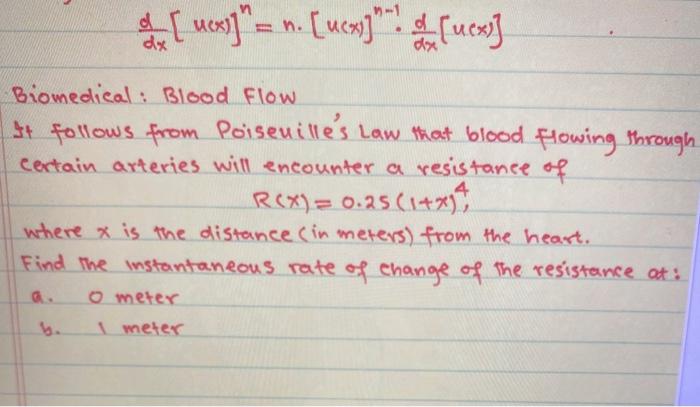 d/dx [u(x)]ⁿ = n. [u(x)]ⁿ⁻¹ . d/dx [u(x)]
Biomedical : Blood Flow
It follows from Poiseuille's Law that blood flowing through
certain arteries will encounter a resistance of
R(x) = 0.25 (1+x)⁴,
where x is the distance (in meters) from the heart.
Find The instantaneous rate of change of The resistance at :
a. 0 meter
b. 1 meter